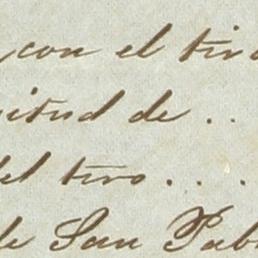 con el tiro
itud de . .
el tiro . . . .
de San Pab